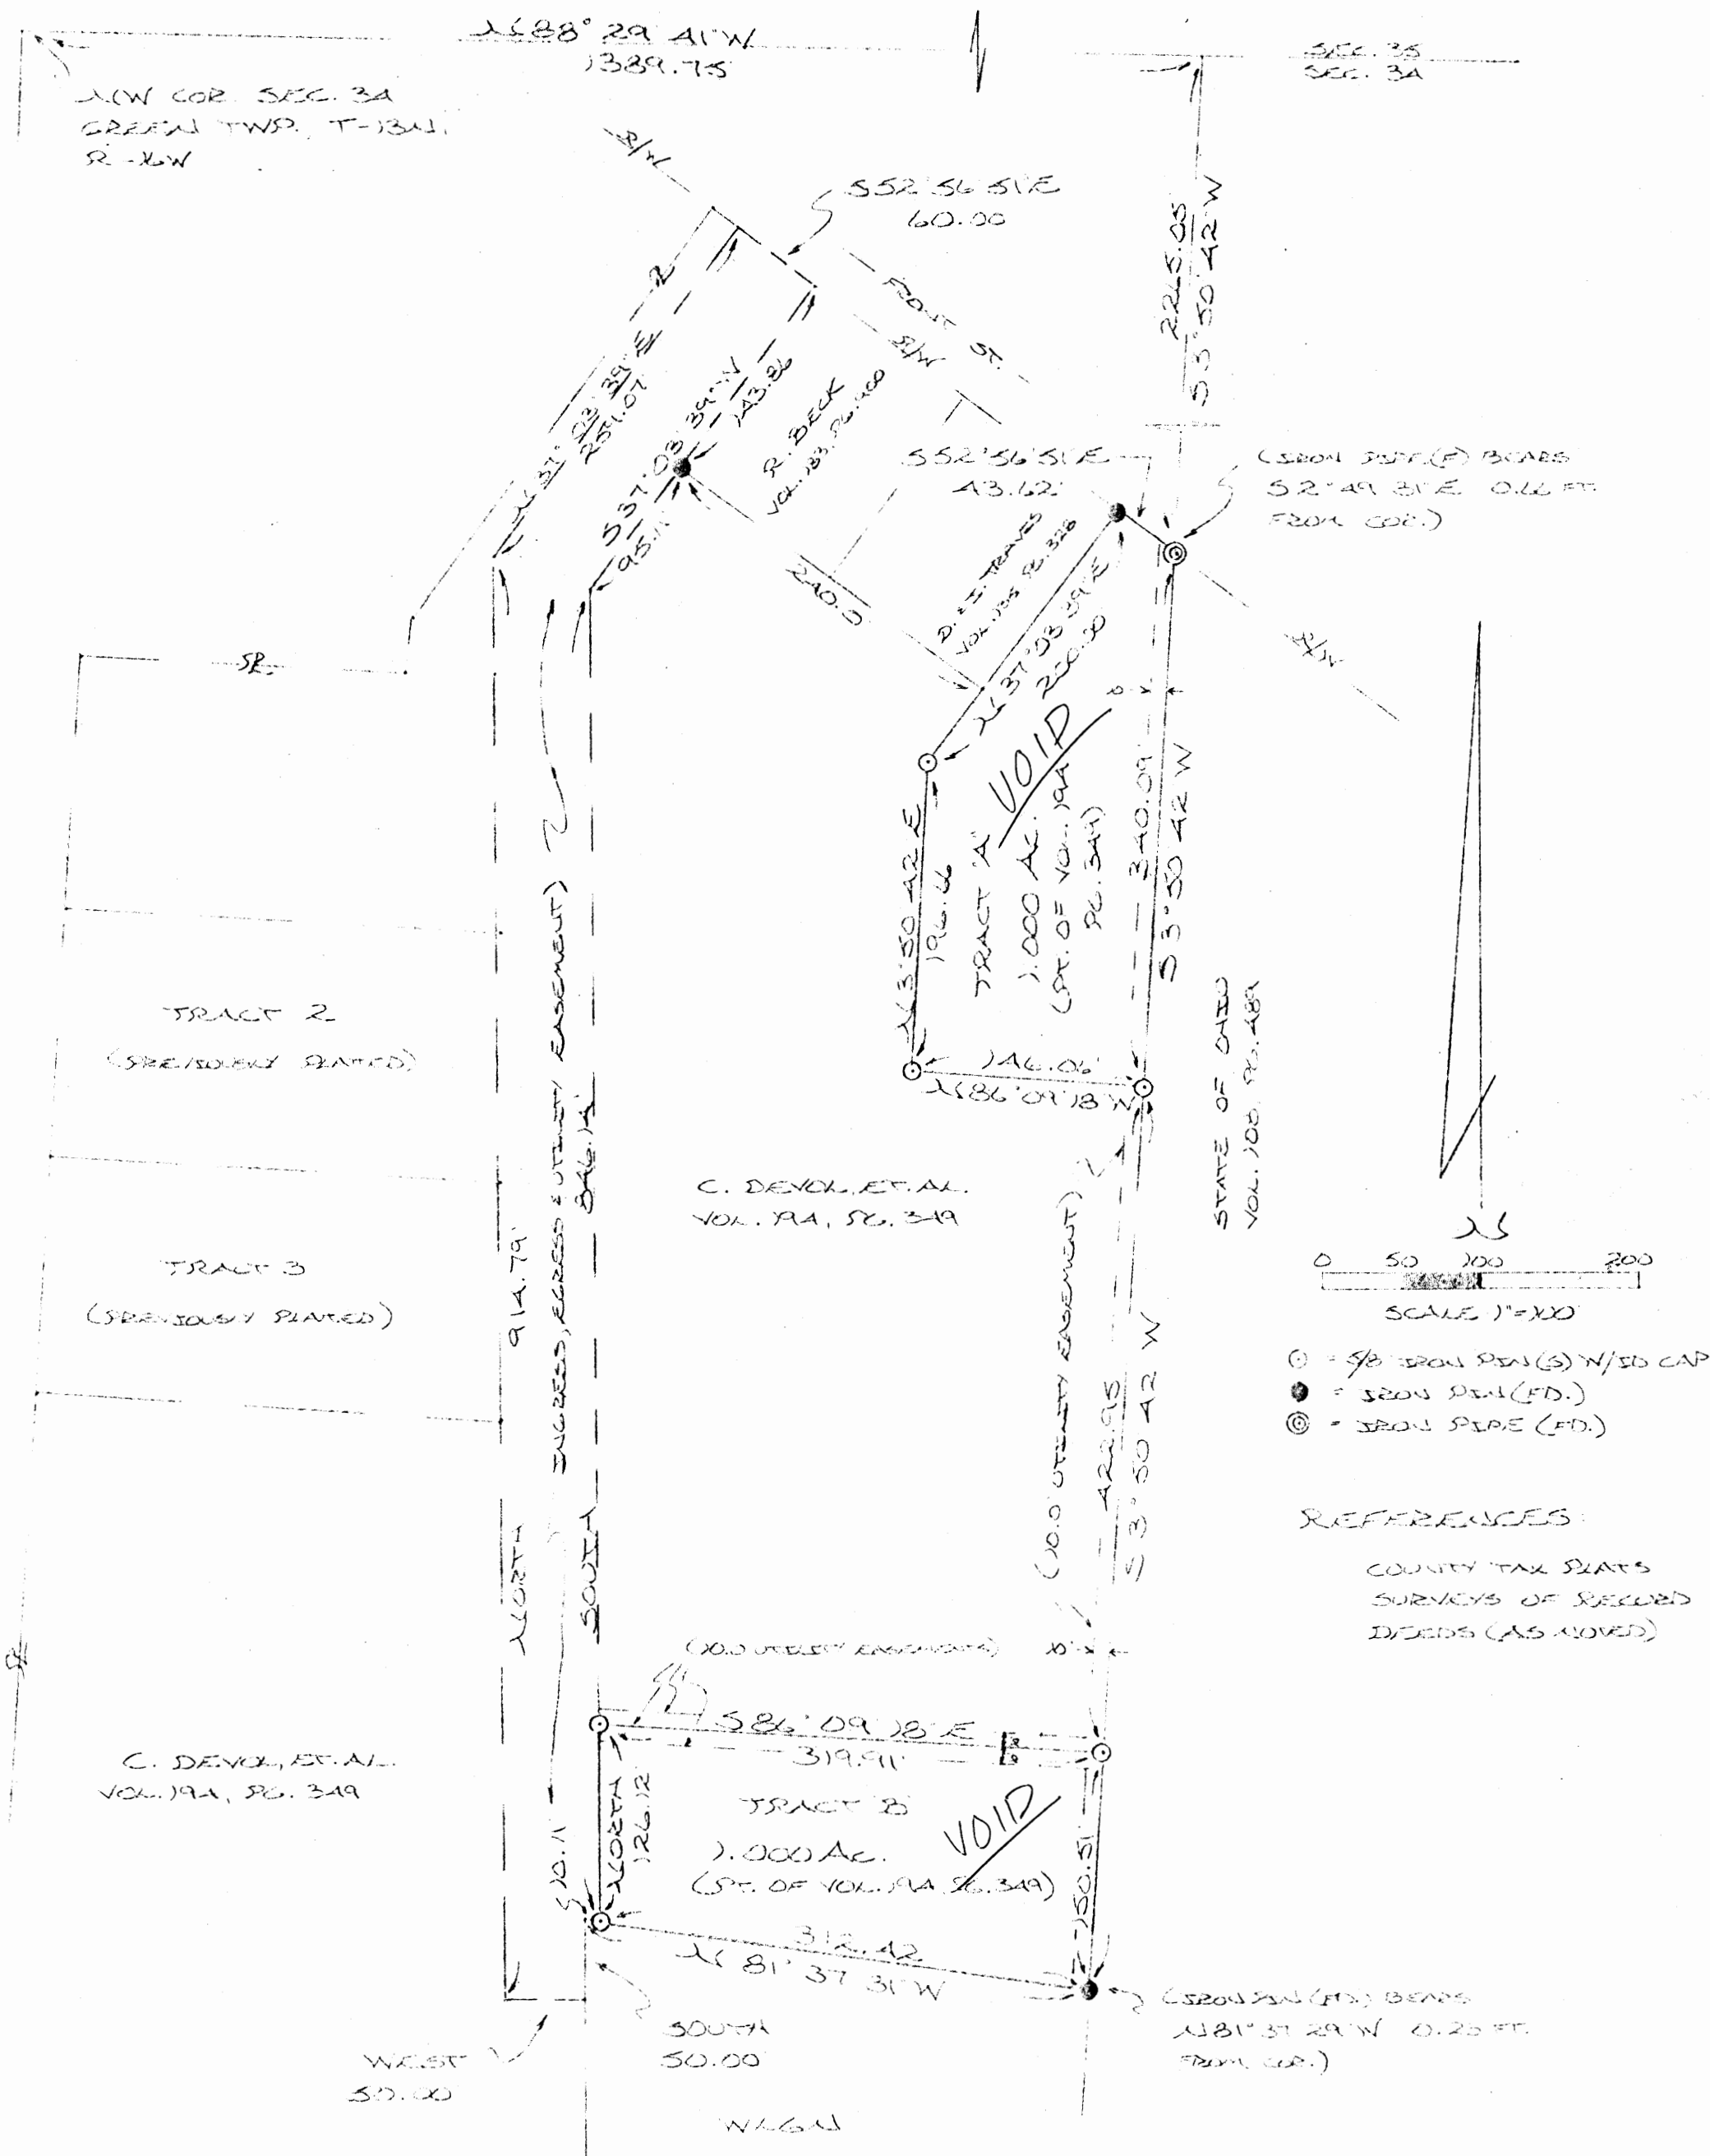 N 88° 29' 41" W
1389.75
SEC. 35
SEC. 34
NW COR. SEC. 34
GREEN TWP., T-13N,
R-16W
R/W
S 52° 56' 51" E
60.00
FRONT ST.
R/W
2265.05
S 3° 50' 42" W
N 37° 03' 39" E
259.07
S 37° 03' 39" W
143.86
95.11
R. BECK
VOL. 183, PG. 400
S 52° 56' 51" E
43.62'
(IRON PIPE (F) BEARS
S 2° 49' 31" E 0.66 FT.
FROM COR.)
240.0
D. & J. TRAVES
N 37° 03' 39" E
200.30
R/W
VOID
TRACT "A"
1.000 AC.
(PT. OF VOL. 194
PG. 349)
N 3° 50' 42" E
196.66
340.09'
S 3° 50' 42" W
146.06'
N 86° 09' 18" W
STATE OF OHIO
VOL. 108, PG. 489
TRACT 2
(PREVIOUSLY PLATED)
TRACT 3
(PREVIOUSLY PLATED)
INGRESS, EGRESS & UTILITY EASEMENT)
846.14'
SOUTH
914.79'
NORTH
C. DEVOL, ET. AL.
VOL. 194, PG. 349
(10.0' UTILITY EASEMENT)
422.95
S 3° 50' 42" W
N
0 50 100 200
SCALE 1"=100'
= 5/8" IRON PIN(S) W/ID CAP
= IRON PIN (FD.)
= IRON PIPE (FD.)
REFERENCES:
COUNTY TAX PLATS
SURVEYS OF RECORD
DEEDS (AS NOTED)
(10.0 UTILITY EASEMENTS)
10'
S 86° 09' 18" E
319.91'
C. DEVOL, ET. AL.
VOL. 194, PG. 349
TRACT B
VOID
1.000 AC.
(PT. OF VOL. 194 PG. 349)
NORTH
126.12
10.11
150.51
312.42
N 81° 37' 31" W
(IRON PIN (FD.) BEARS
N 81° 37' 29" W 0.25 FT.
FROM COR.)
SOUTH
50.00
WEST
50.00